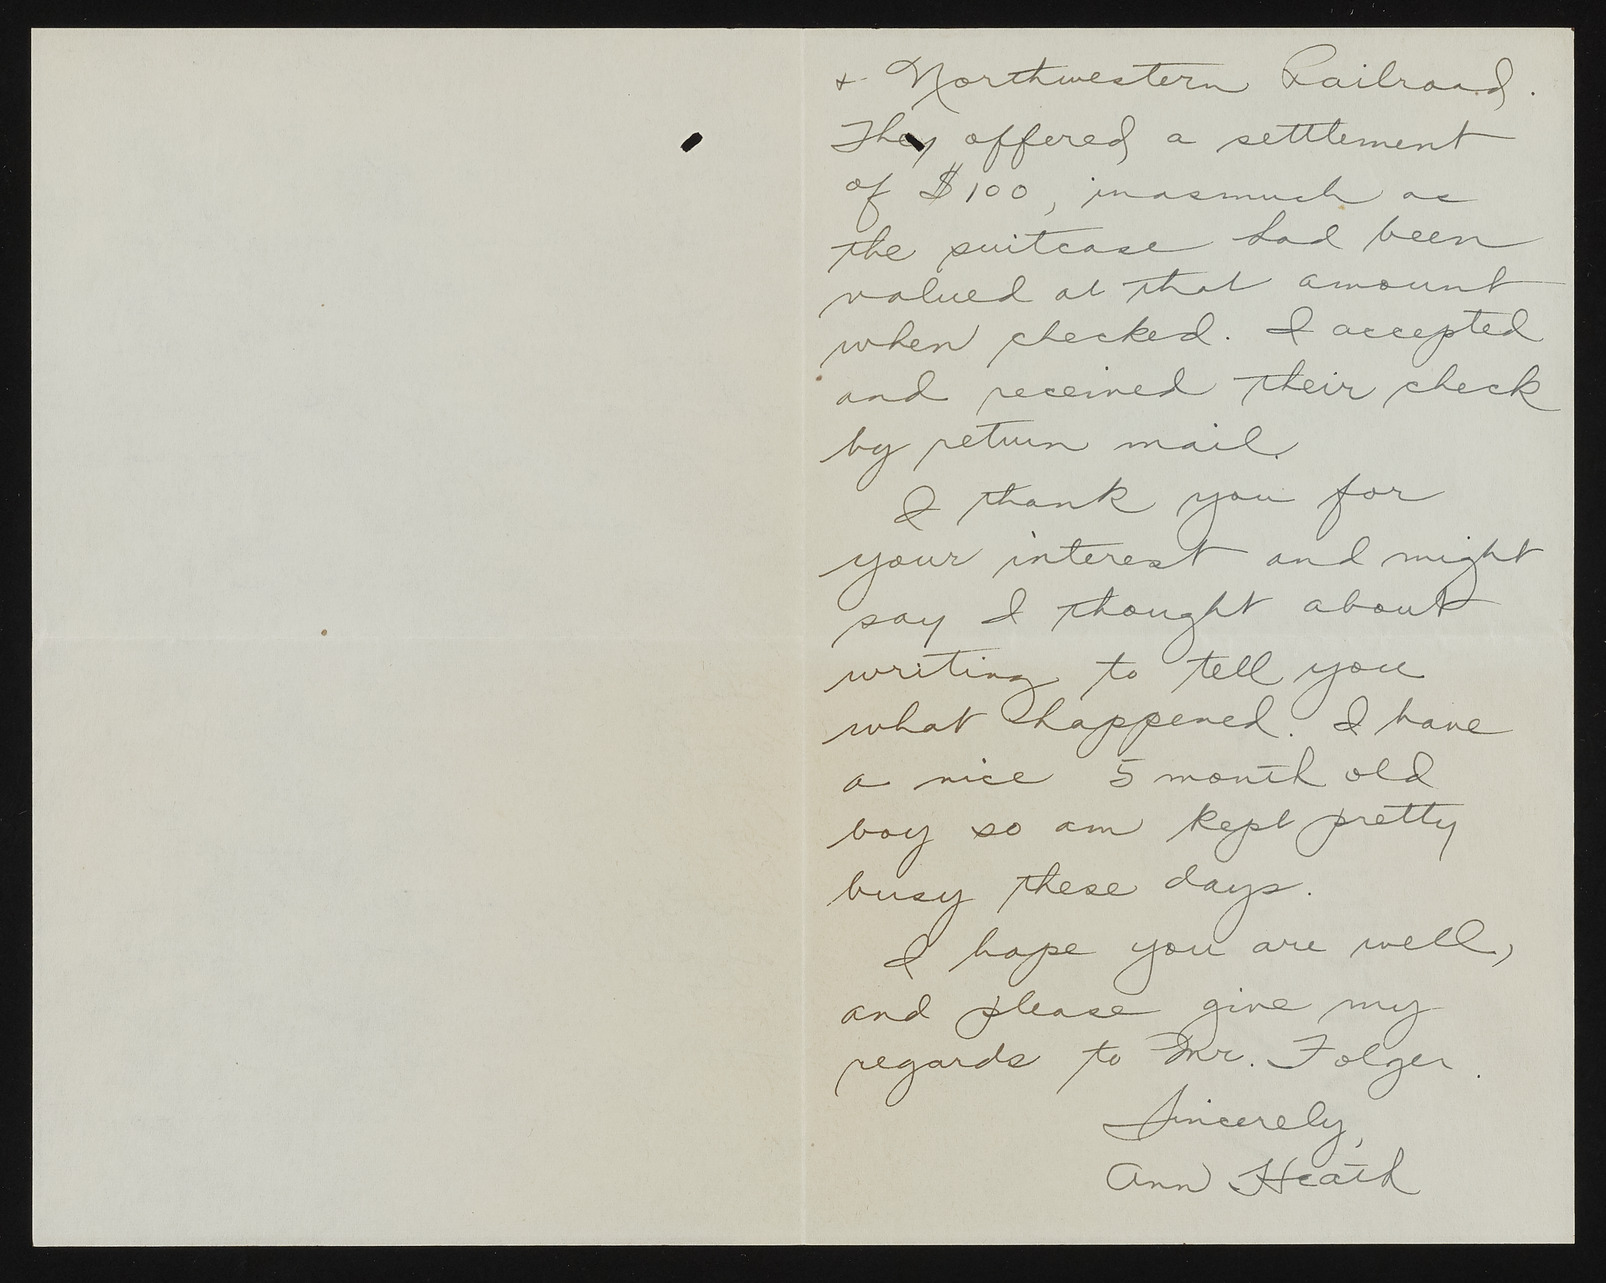 + Northwestern Railroad.
They offered a settlement
of $100, inasmuch as
the suitcase had been
valued at that amount
when checked. I accepted
and received their check
by return mail.
I thank you for
your interest and might
say I thought about
writing to tell you
what happened. I have
a nice 5 month old
boy so am kept pretty
busy these days.
I hope you are well,
and please give my
regards to Mr. Folger.
Sincerely,
Ann Heath